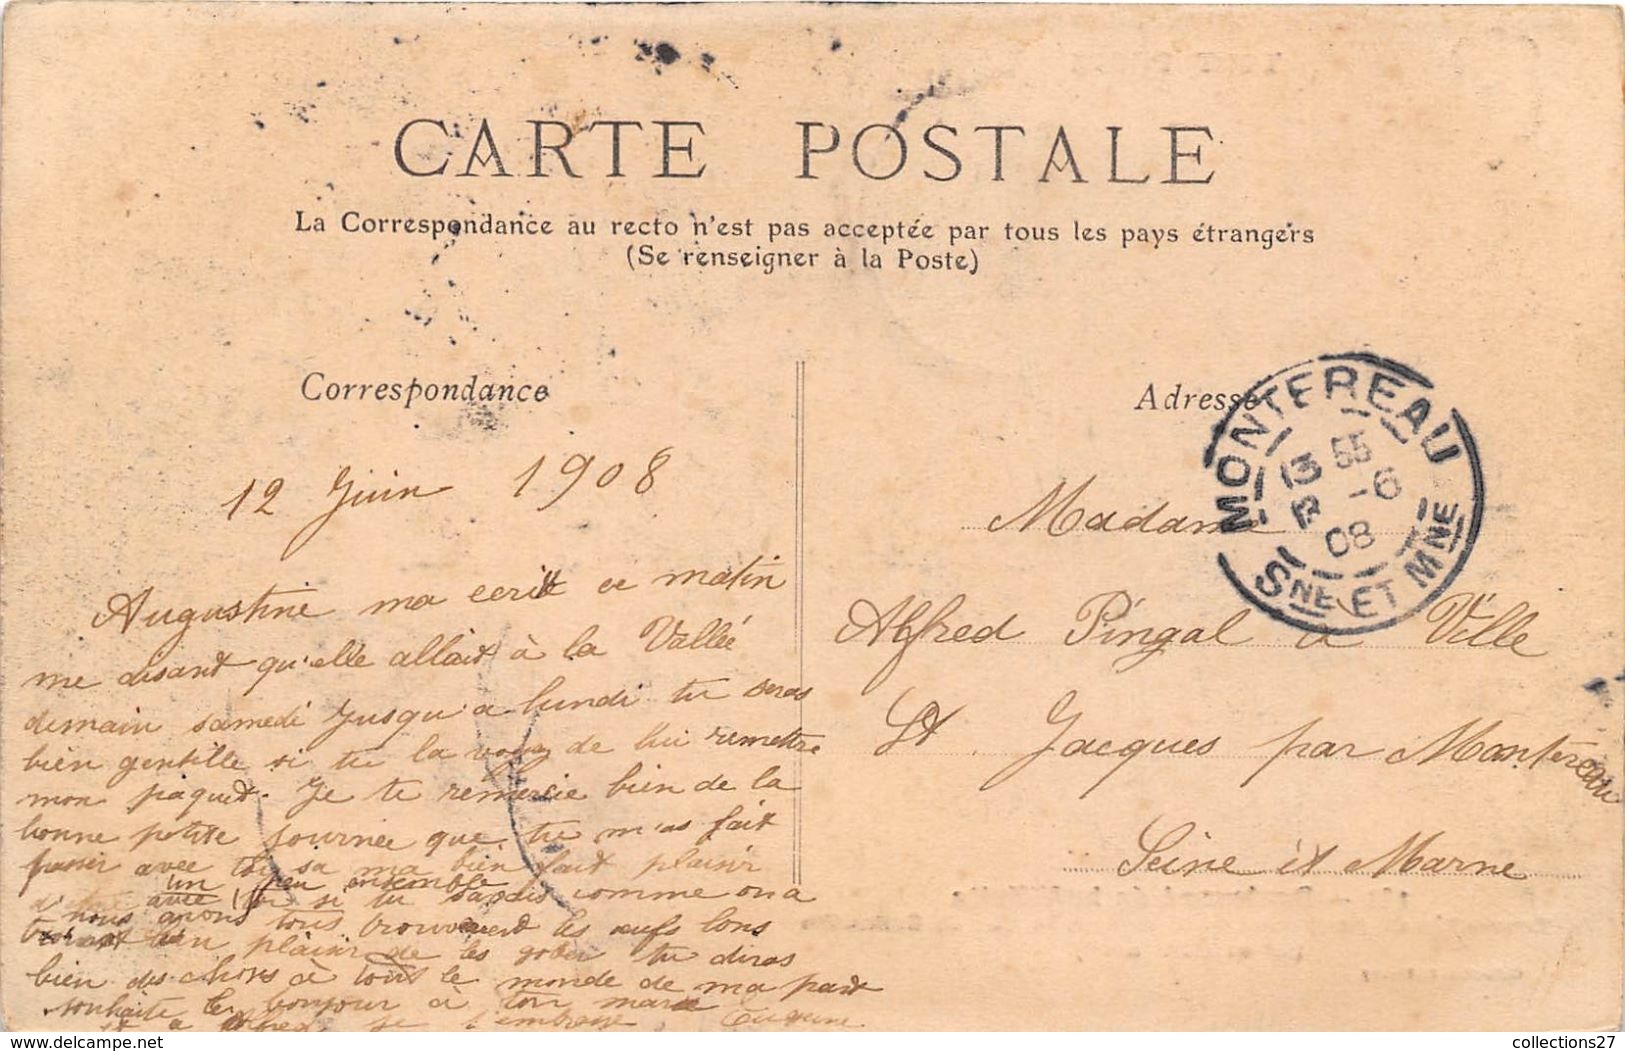 CARTE POSTALE
La Correspondance au recto n'est pas acceptée par tous les pays étrangers
(Se renseigner à la Poste)
Correspondance
12 Juin 1908
Augustine ma ecrit ce matin
me disant qu'elle allait à la Vallée
demain samedi jusqu'a lundi tu seras
bien gentille si tu la vois de lui remettre
mon paquet. Je te remercie bien de la
bonne petite journée que tu m'as fait
passer avec toi sa ma bien fait plaisir
un peu ensemble
avec toi si tu savais comme on a
nous avons tous trouvered les œufs bons
bien plaisir de les gober tu diras
bien des choses à tout le monde de ma part
souhaite le bonjour à ton mari
et a Alfred je t'embrasse
Adresse
MONTEREAU
13 55
6
08
SNE ET MNE
Madame
Alfred Pingal a Ville
St Jacques par Montereau
Seine et Marne
www.delcampe.net
collections27